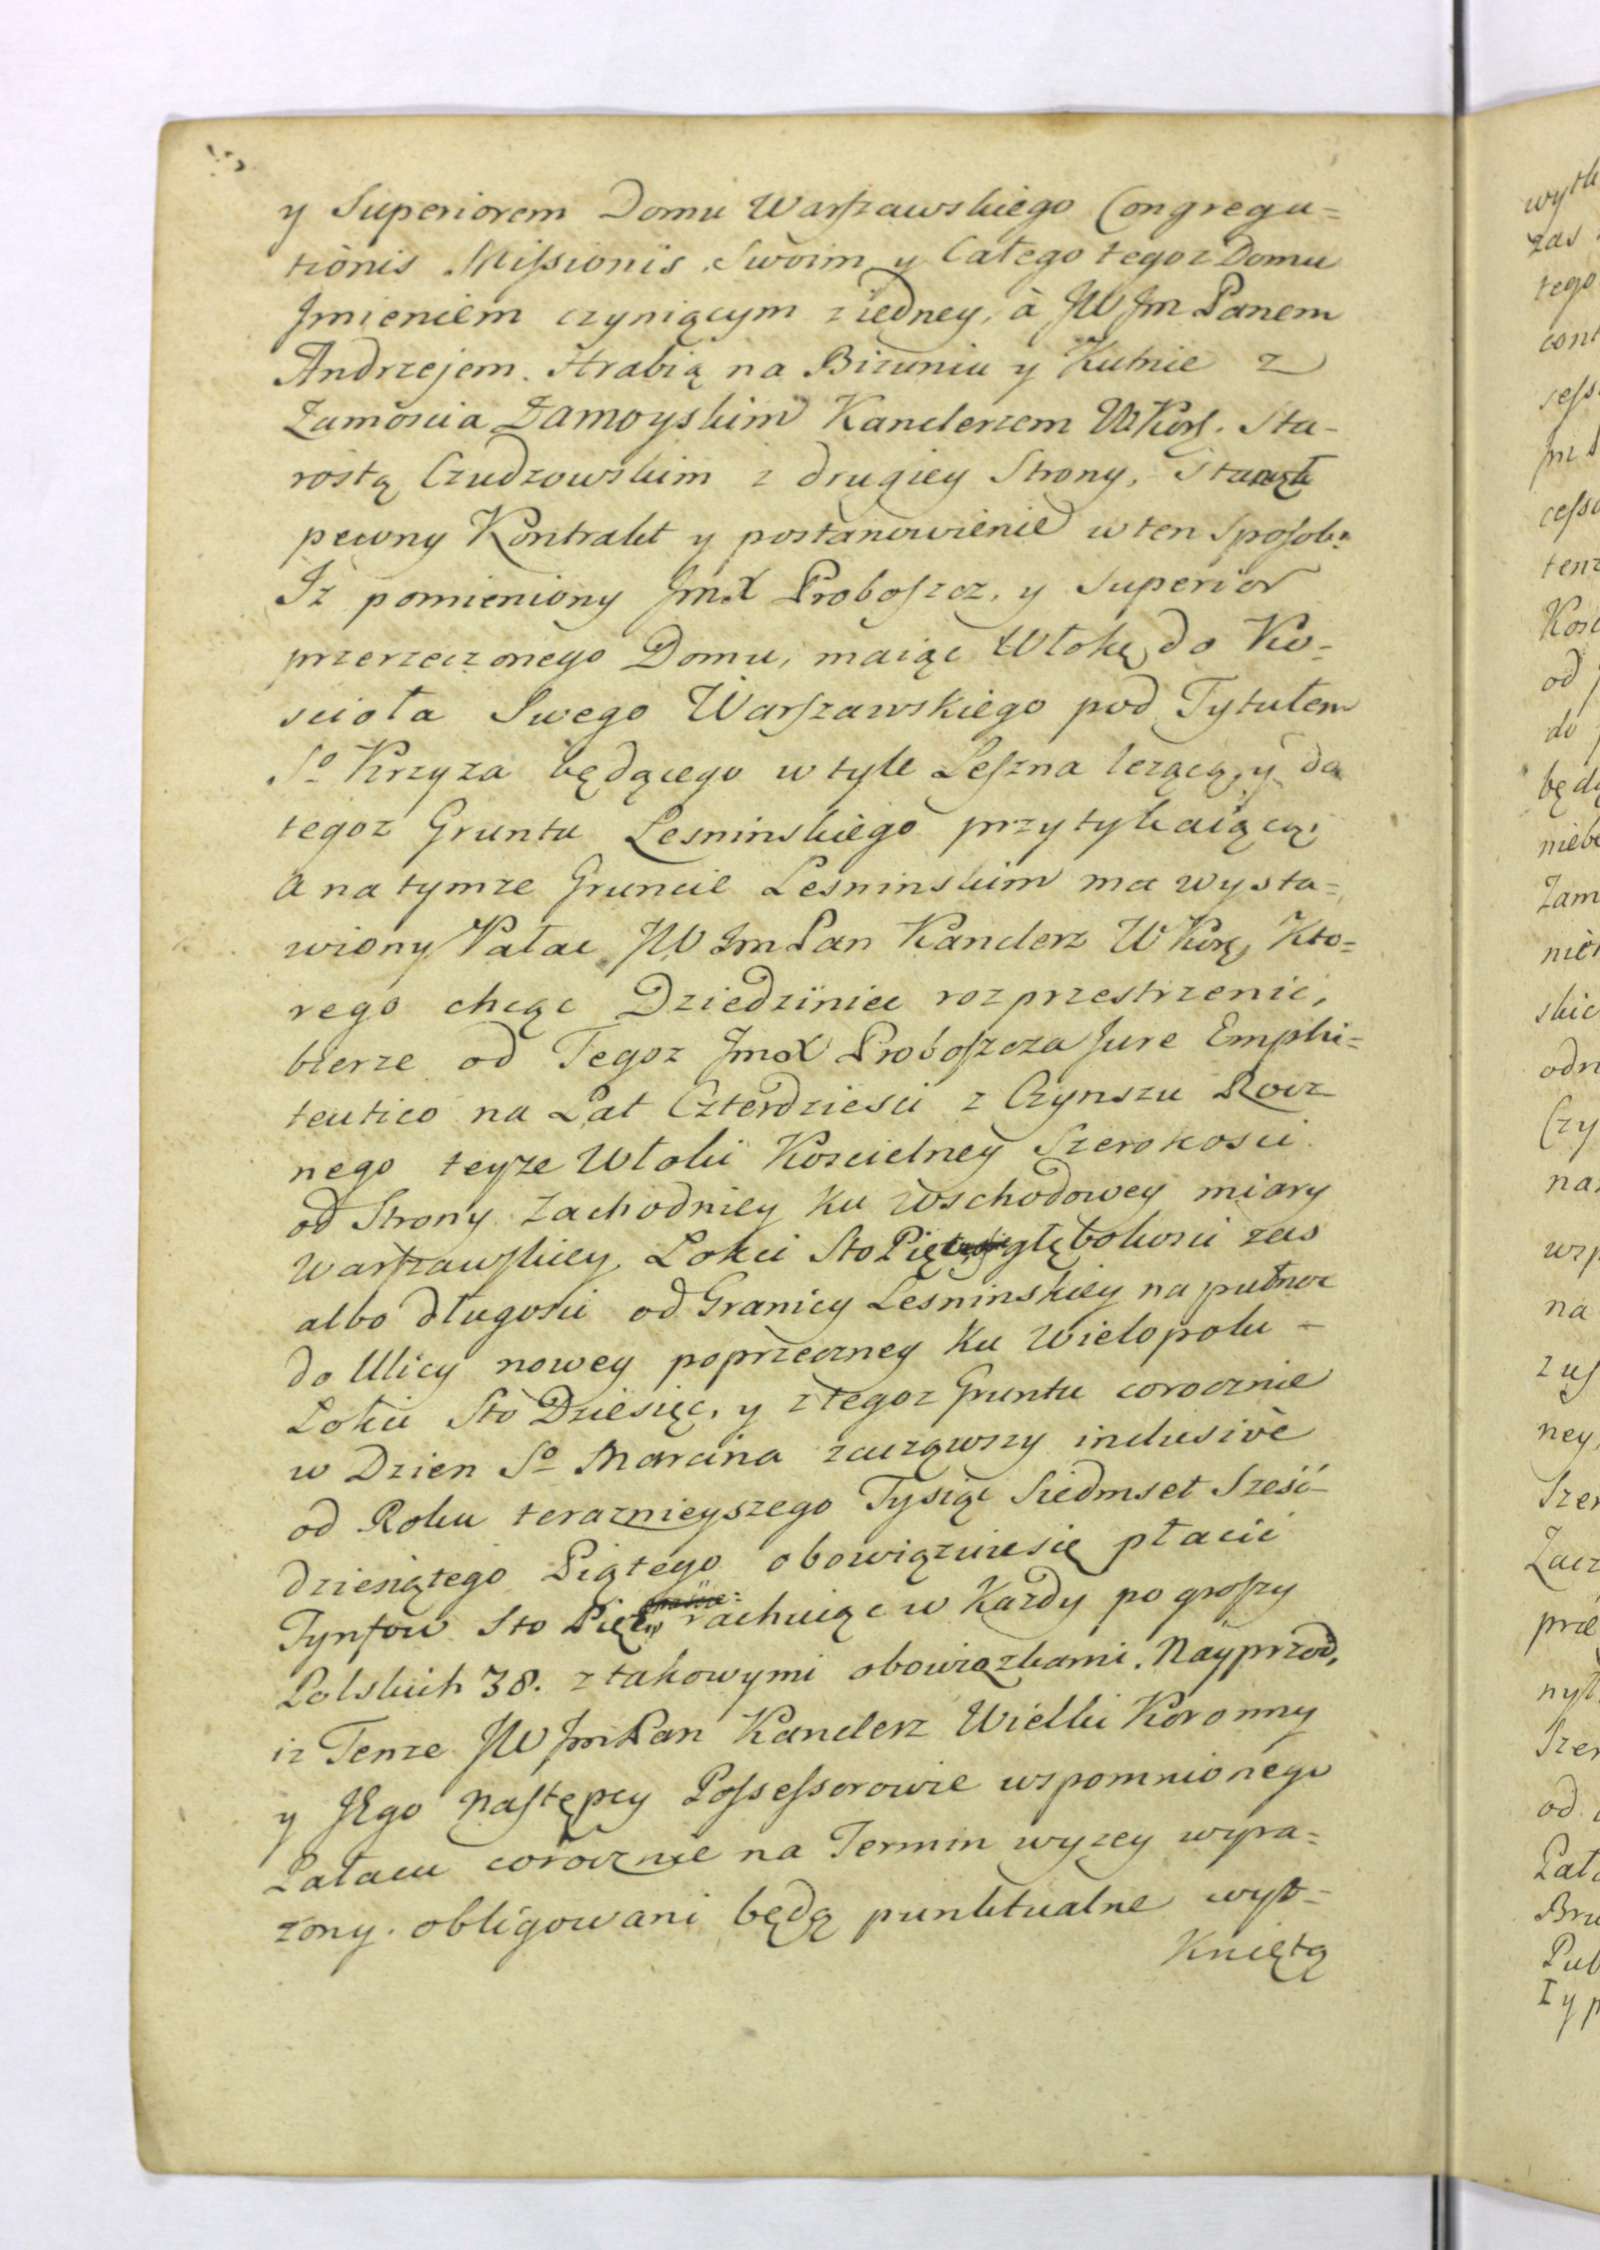 y Superiorem Domu Warszawskiego Congrega=
tionis Missionis Swoim y Całego tegoz Domu
Jmieniem czyniącym z iedney, à JW Jm Panem
Andrzejem Hrabią na Bizuniu y Kutnie z
Zamoscia Zamoyskim Kanclerzem WKor. Sta-
rostą Czudzowskim z drugiey Strony, Stanął
pewny Kontrakt y postanowienie w ten Sposob:
Iz pomieniony JmX Proboszcz, y Superior
przerzeczonego Domu, maiąc Włokę do Ko=
scioła Swego Warszawskiego pod Tytułem
So Krzyza będącego w tyle Leszna lezącą, y do
tegoz Gruntu Lesninskiego przytykaiącą,
A na tymze Gruncie Lesninskim ma wysta=
wiony Pałac JW Jm Pan Kanclerz WKor, Kto=
rego chcąc Dziedziniec rozprzestrzenic,
bierze od Tegoz JmX Proboszcza Jure Emphi=
teutico na Lat Czterdziesci z Czynszu Rocz
nego teyze Włoki Koscielney Szerokosci
od Strony Zachodniey ku Wschodowey miary
Warszawskiey Lokci Sto Pięc głębokosci zas
albo długosci od Granicy Lesninskiey na pułnoc
do Ulicy nowey poprzeczney ku Wielopolu -
Lokci Sto Dziesięc, y z tegoz Gruntu corocznie
w Dzien So Marcina zacząwszy inclusivè
od Roku teraznieyszego Tysiąc Siedmset Sześć-
dziesiątego Piątego obowiązuie się płacić
Tynfow Sto Pięc, rachuiąc w Kazdy po groszy
Polskich 38. z takowymi obowiązkami. Nayprzod,
iz Tenze JW Jm Pan Kanclerz Wielki Koronny
y JEgo Następcy Possessorowie wspomnionego
Pałacu corocznie na Termin wyzey wyra=
zony obligowani będą punktualne wyt=
knięta